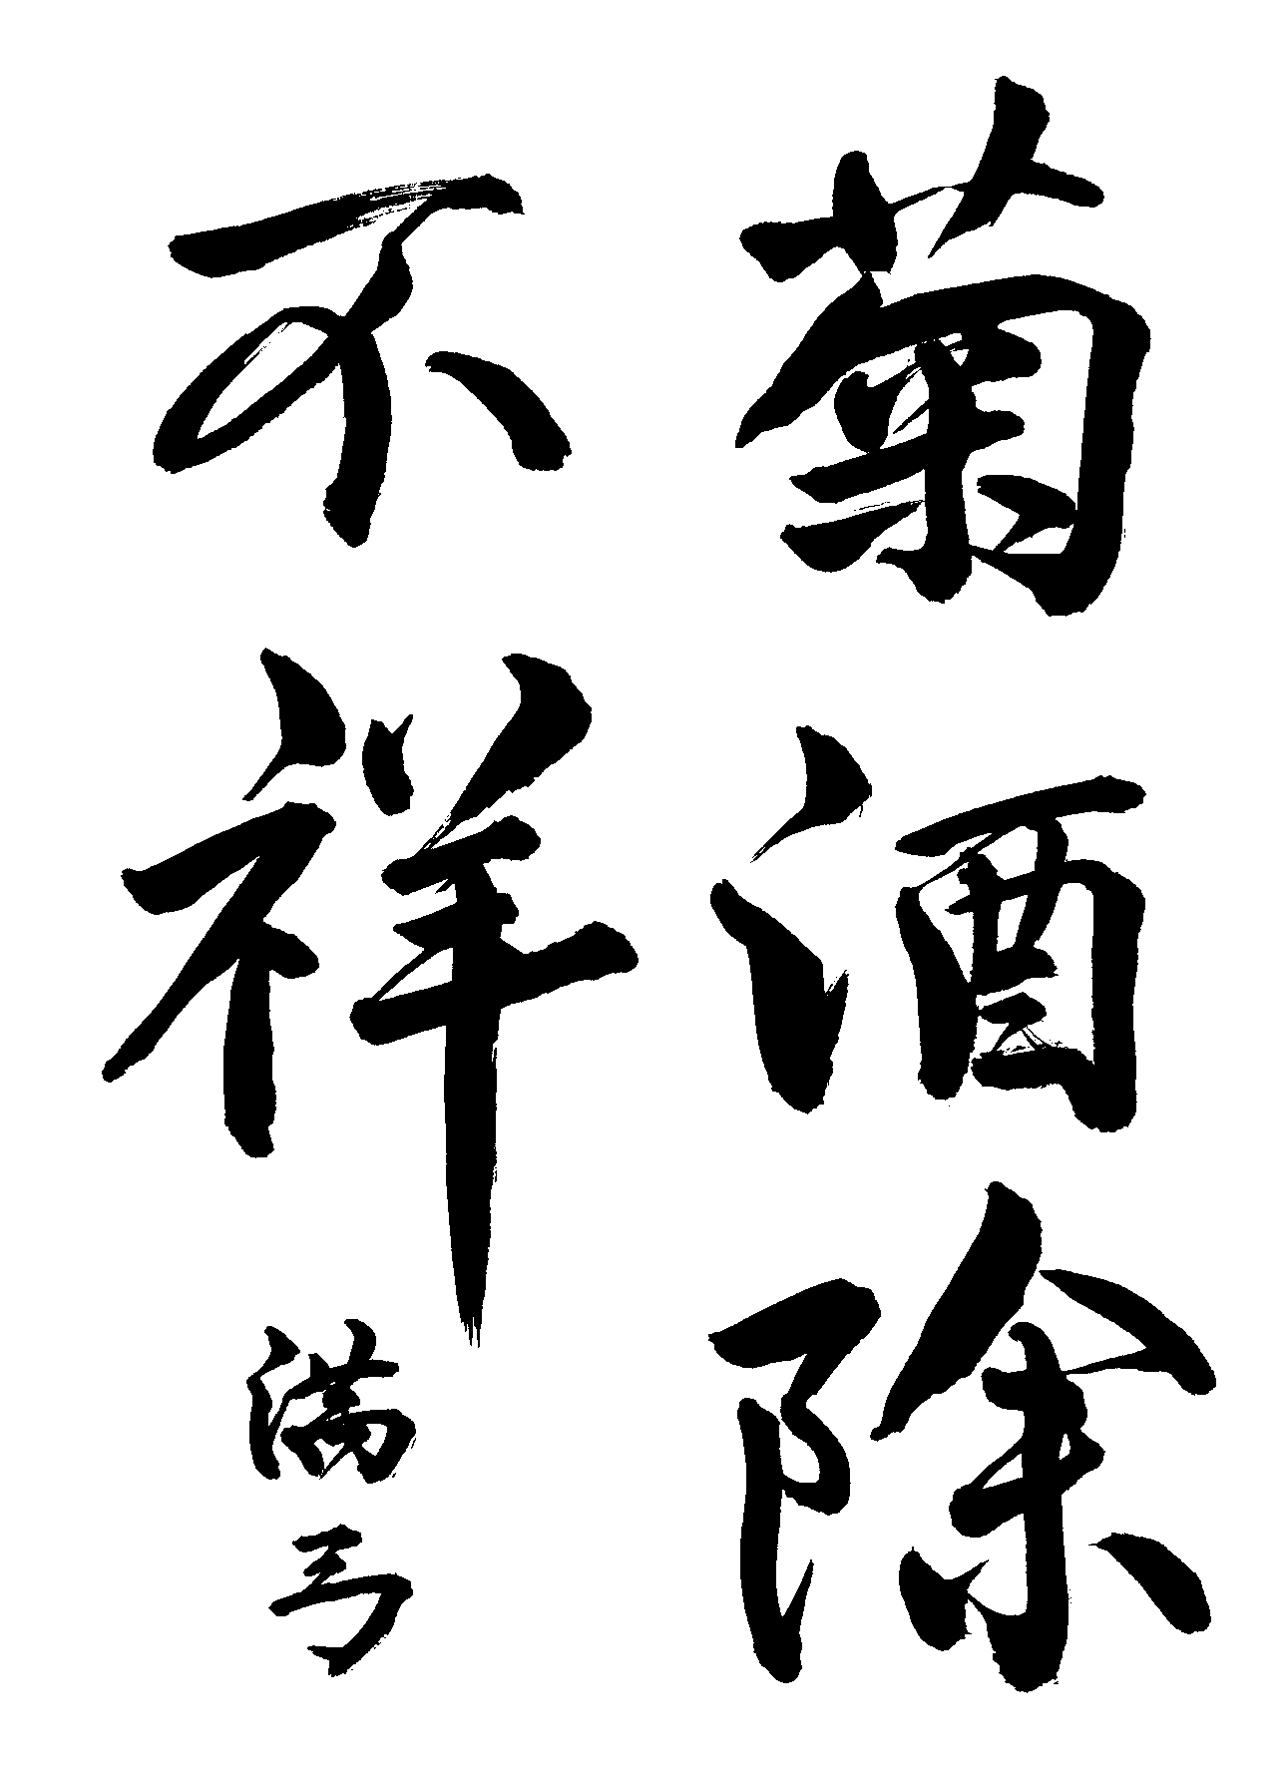 菊酒除
不祥
満弓